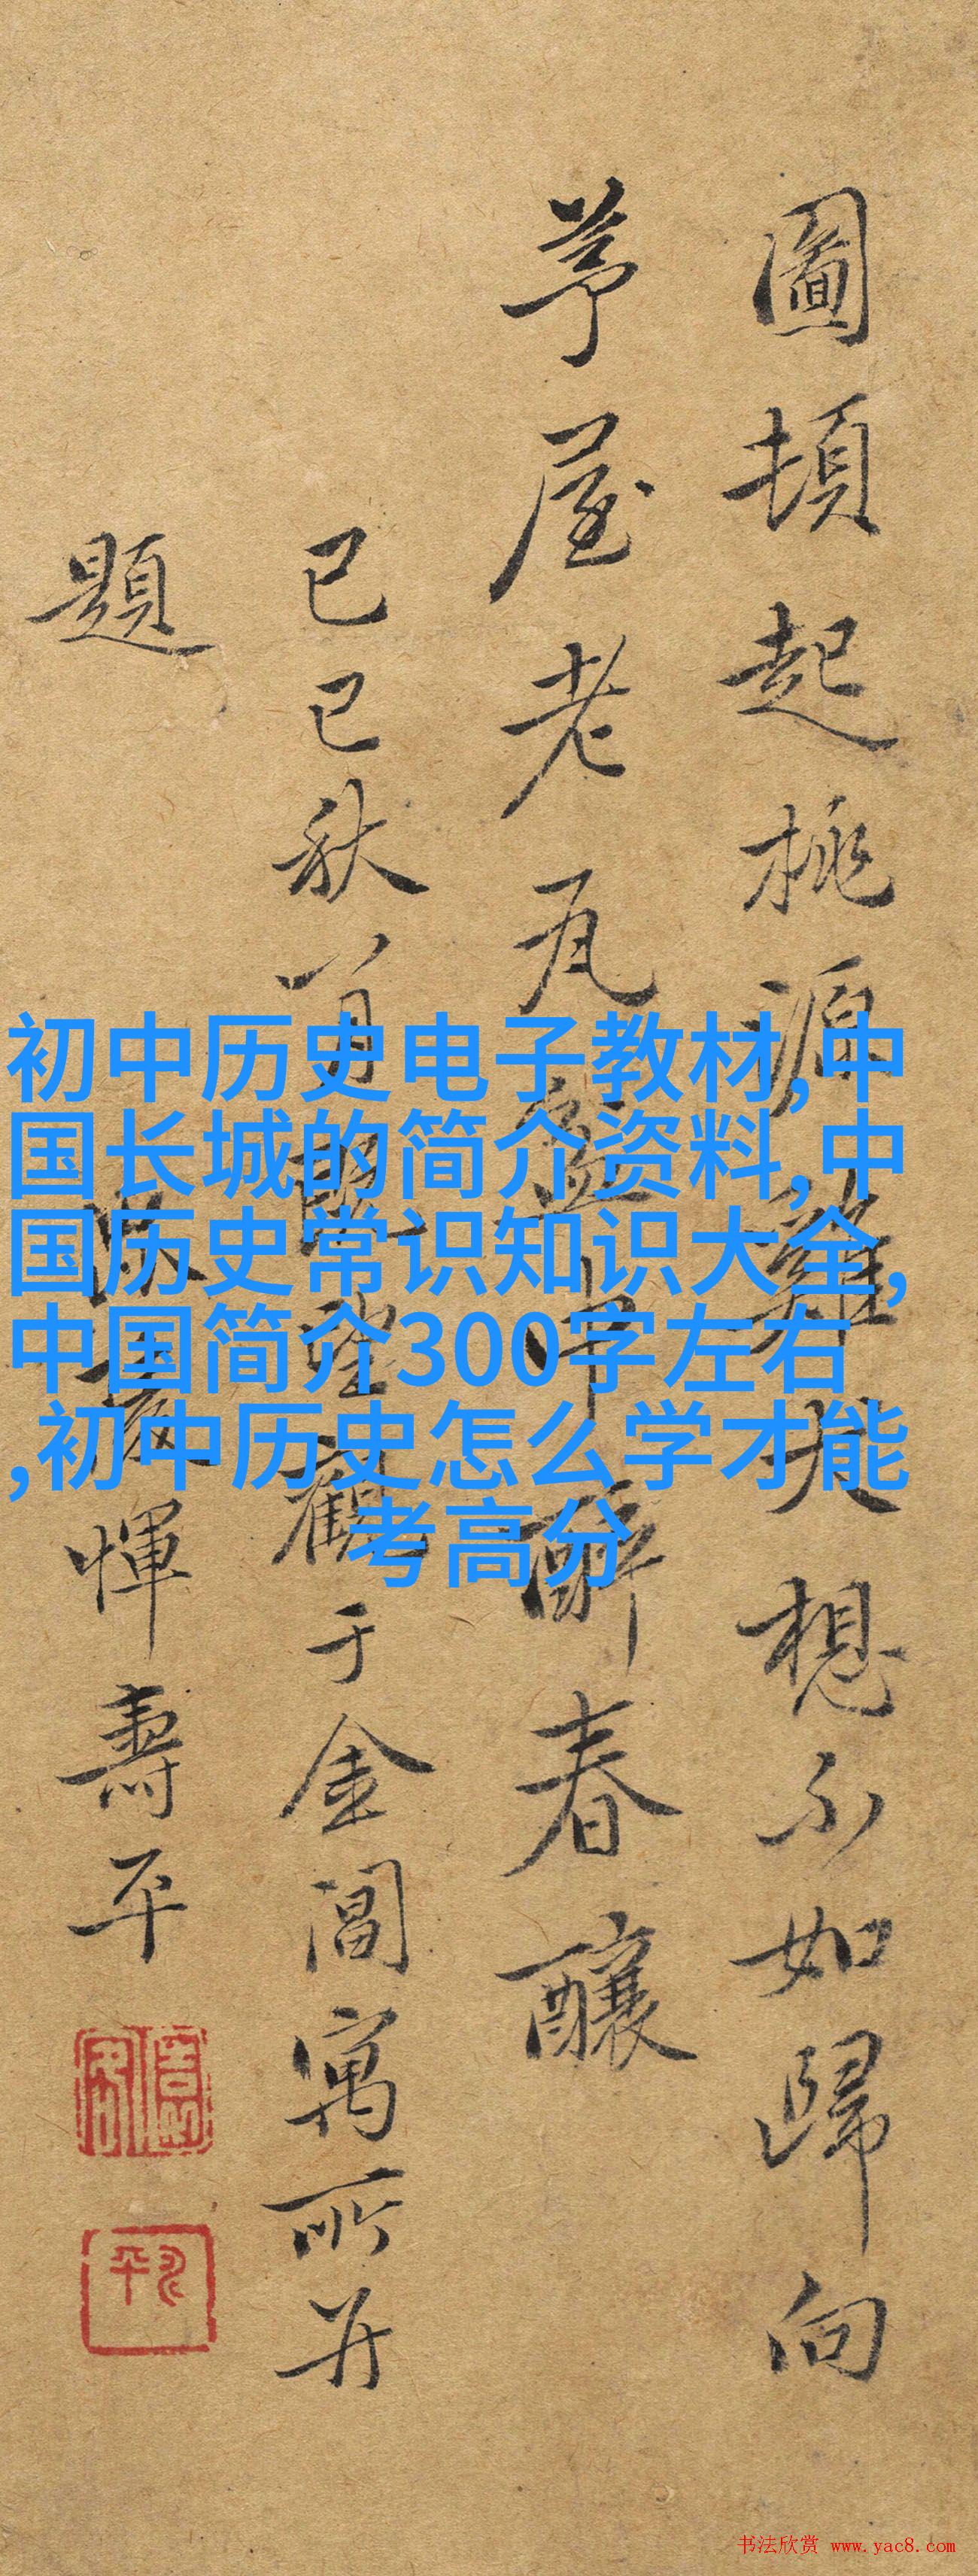 圖頓起桃源雞犬想不如歸向
茅屋老瓦盆中醉春釀
己巳秋八月既望觀于金閶寓所并
題
惲壽平
初中历史电子教材,中
国长城的简介资料,中
国历史常识知识大全,
中国简介300字左右
,初中历史怎么学才能
考高分
书法欣赏 www.yac8.com